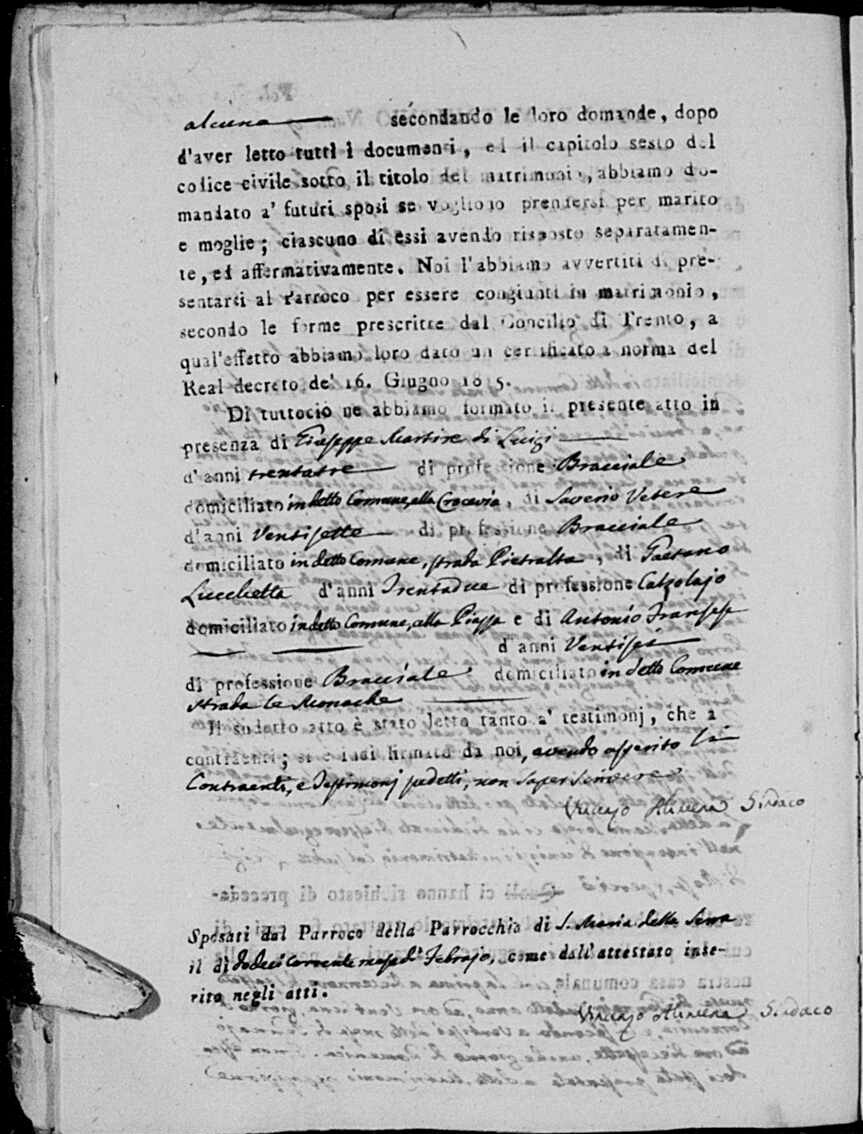 alcuna secondando le loro domande, dopo
d'aver letto tutti i documenti, ed il capitolo sesto del
codice civile sotto il titolo del matrimonio, abbiamo do-
mandato a' futuri sposi se vogliono prendersi per marito
e moglie; ciascuno di essi avendo risposto separatamen-
te, ed affermativamente. Noi l'abbiamo avvertiti di pre-
sentarsi al Parroco per essere congiunti in matrimonio,
secondo le forme prescritte dal Concilio di Trento, a
qual'effetto abbiamo loro dato un certificato a norma del
Real decreto de' 16. Giugno 1815.
Di tuttociò ne abbiamo formato il presente atto in
presenza di Giuseppe Martire di Luigi
d'anni trentatre di professione Bracciale
domiciliato in detto Comune, alla Crocevia, di Saverio Vetere
d'anni Ventisette di professione Bracciale
domiciliato in detto Comune, strada Pietralta, di Gaetano
Lucchetta d'anni Trentadue di professione Calzolajo
domiciliato in detto Comune, alla Piazza e di Antonio Franzese
d'anni Ventisei
di professione Bracciale domiciliato in detto Comune
strada le Monache
Il sudetto atto è stato letto tanto a' testimonj, che a
contraenti; si è indi firmato da noi, avendo asserito li
Contraenti, e Testimonj sudetti, non saper scrivere
Sindaco
Sposati dal Parroco della Parrocchia di S. Maria della Serra
il dì dodeci corrente mese di Febrajo, come dall'attestato inse-
rito negli atti.
Sindaco